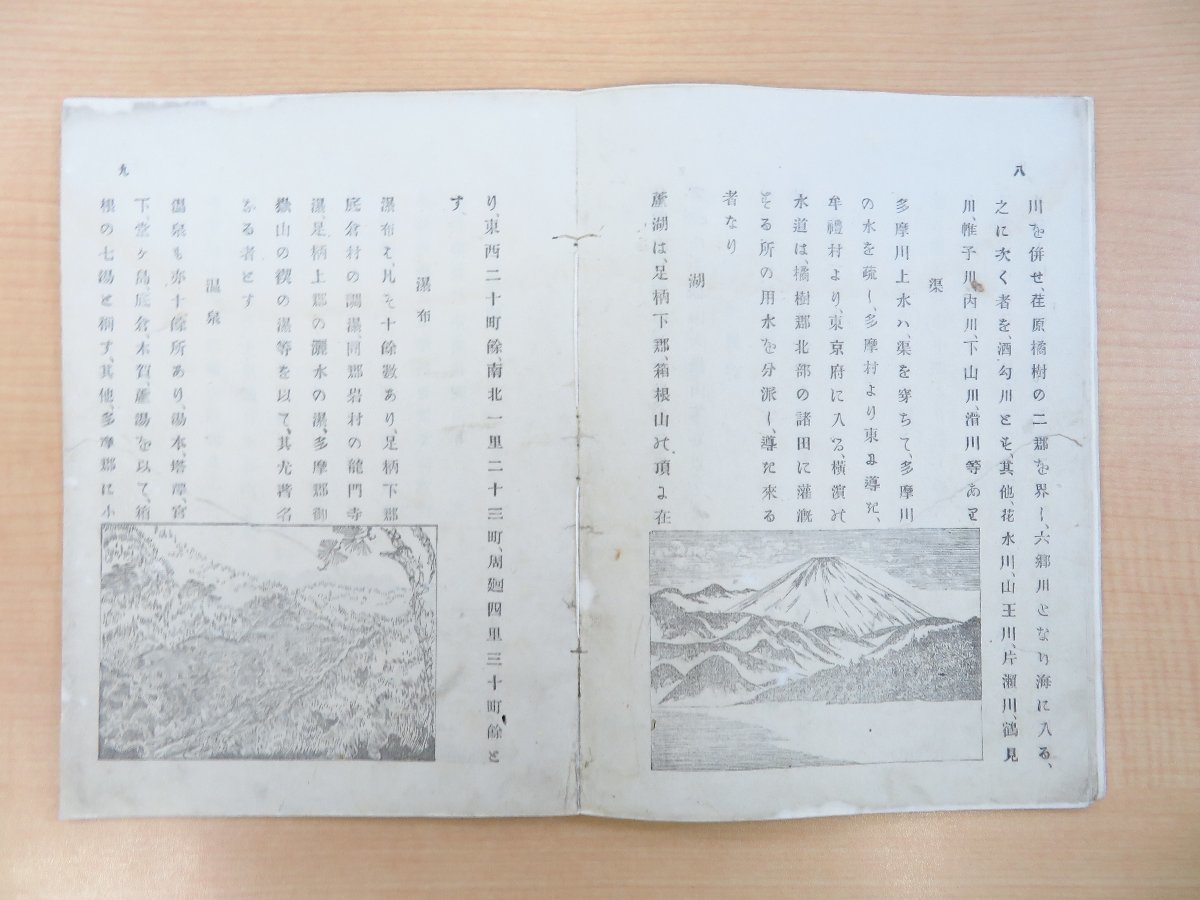 八
川を併せ、荏原橘樹の二郡を界し、六郷川となり海に入る、
之に次く者を、酒匂川とも、其他、花水川、山王川、片瀬川、鶴見
川、帷子川、内川、下山川、滑川等あり
渠
多摩川上水ハ、渠を穿ちて、多摩川
の水を疏し、多摩村より東に導き、
牟禮村より、東京府に入る、横濱の
水道は、橘樹郡北部の諸田に灌漑
する所の用水を分派し、導き來る
者なり
湖
蘆湖は、足柄下郡、箱根山の頂に在
り、東西二十町餘、南北一里二十三町、周廻四里三十町餘と
す
瀑布
瀑布は、凡そ十餘數あり、足柄下郡
底倉村の調瀑、同郡岩村の龍門寺
瀑、足柄上郡の灑水の瀑、多摩郡御
嶽山の禊の瀑等を以て、其尤著名
なる者とす
温泉
温泉も亦十餘所あり、湯本、塔澤、宮
下、堂ヶ島、底倉、木賀、蘆湯を以て、箱
根の七湯と稱す、其他、多摩郡に小
九